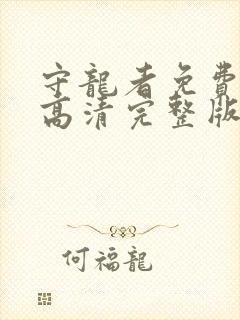 守龍者免費
高清完整版
何福龍